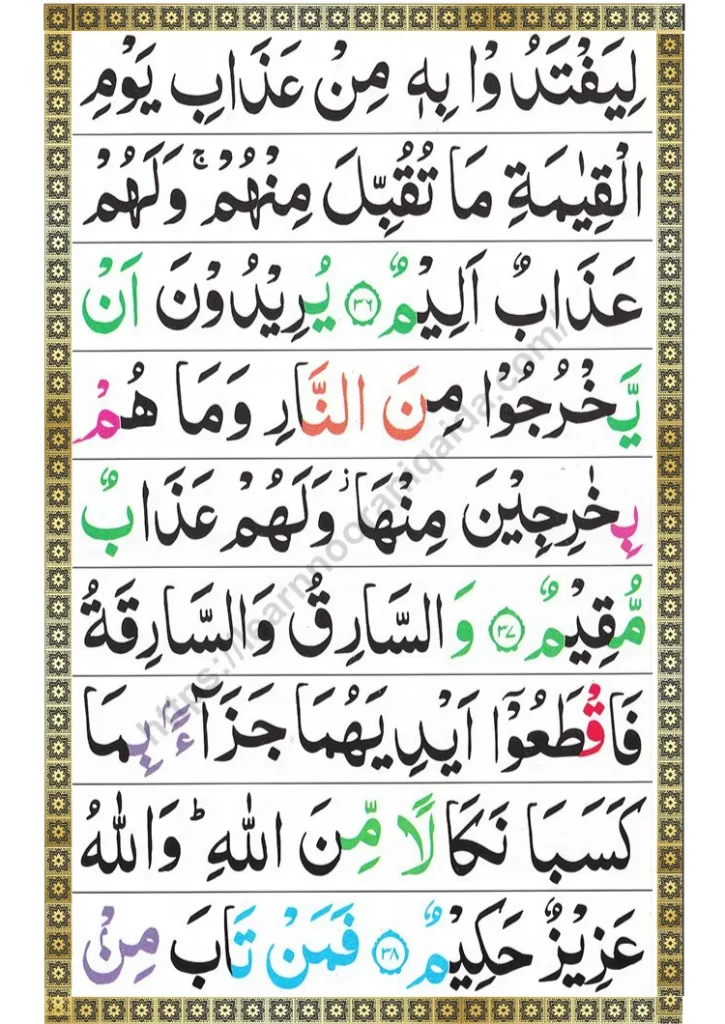 لِيَفْتَدُوْا بِهٖ مِنْ عَذَابِ يَوْمِ
الْقِيٰمَةِ مَا تُقُبِّلَ مِنْهُمْ ۚ وَلَهُمْ
عَذَابٌ اَلِيْمٌ ﴿۳۶﴾ يُرِيْدُوْنَ اَنْ
يَّخْرُجُوْا مِنَ النَّارِ وَمَا هُمْ
بِخٰرِجِيْنَ مِنْهَا ۫ وَلَهُمْ عَذَابٌ
مُّقِيْمٌ ﴿۳۷﴾ وَالسَّارِقُ وَالسَّارِقَةُ
فَاقْطَعُوْٓا اَيْدِيَهُمَا جَزَآءًۢ بِمَا
كَسَبَا نَكَالًا مِّنَ اللّٰهِ ؕ وَاللّٰهُ
عَزِيْزٌ حَكِيْمٌ ﴿۳۸﴾ فَمَنْ تَابَ مِنْۢ
https://learnnooraniqaida.com/